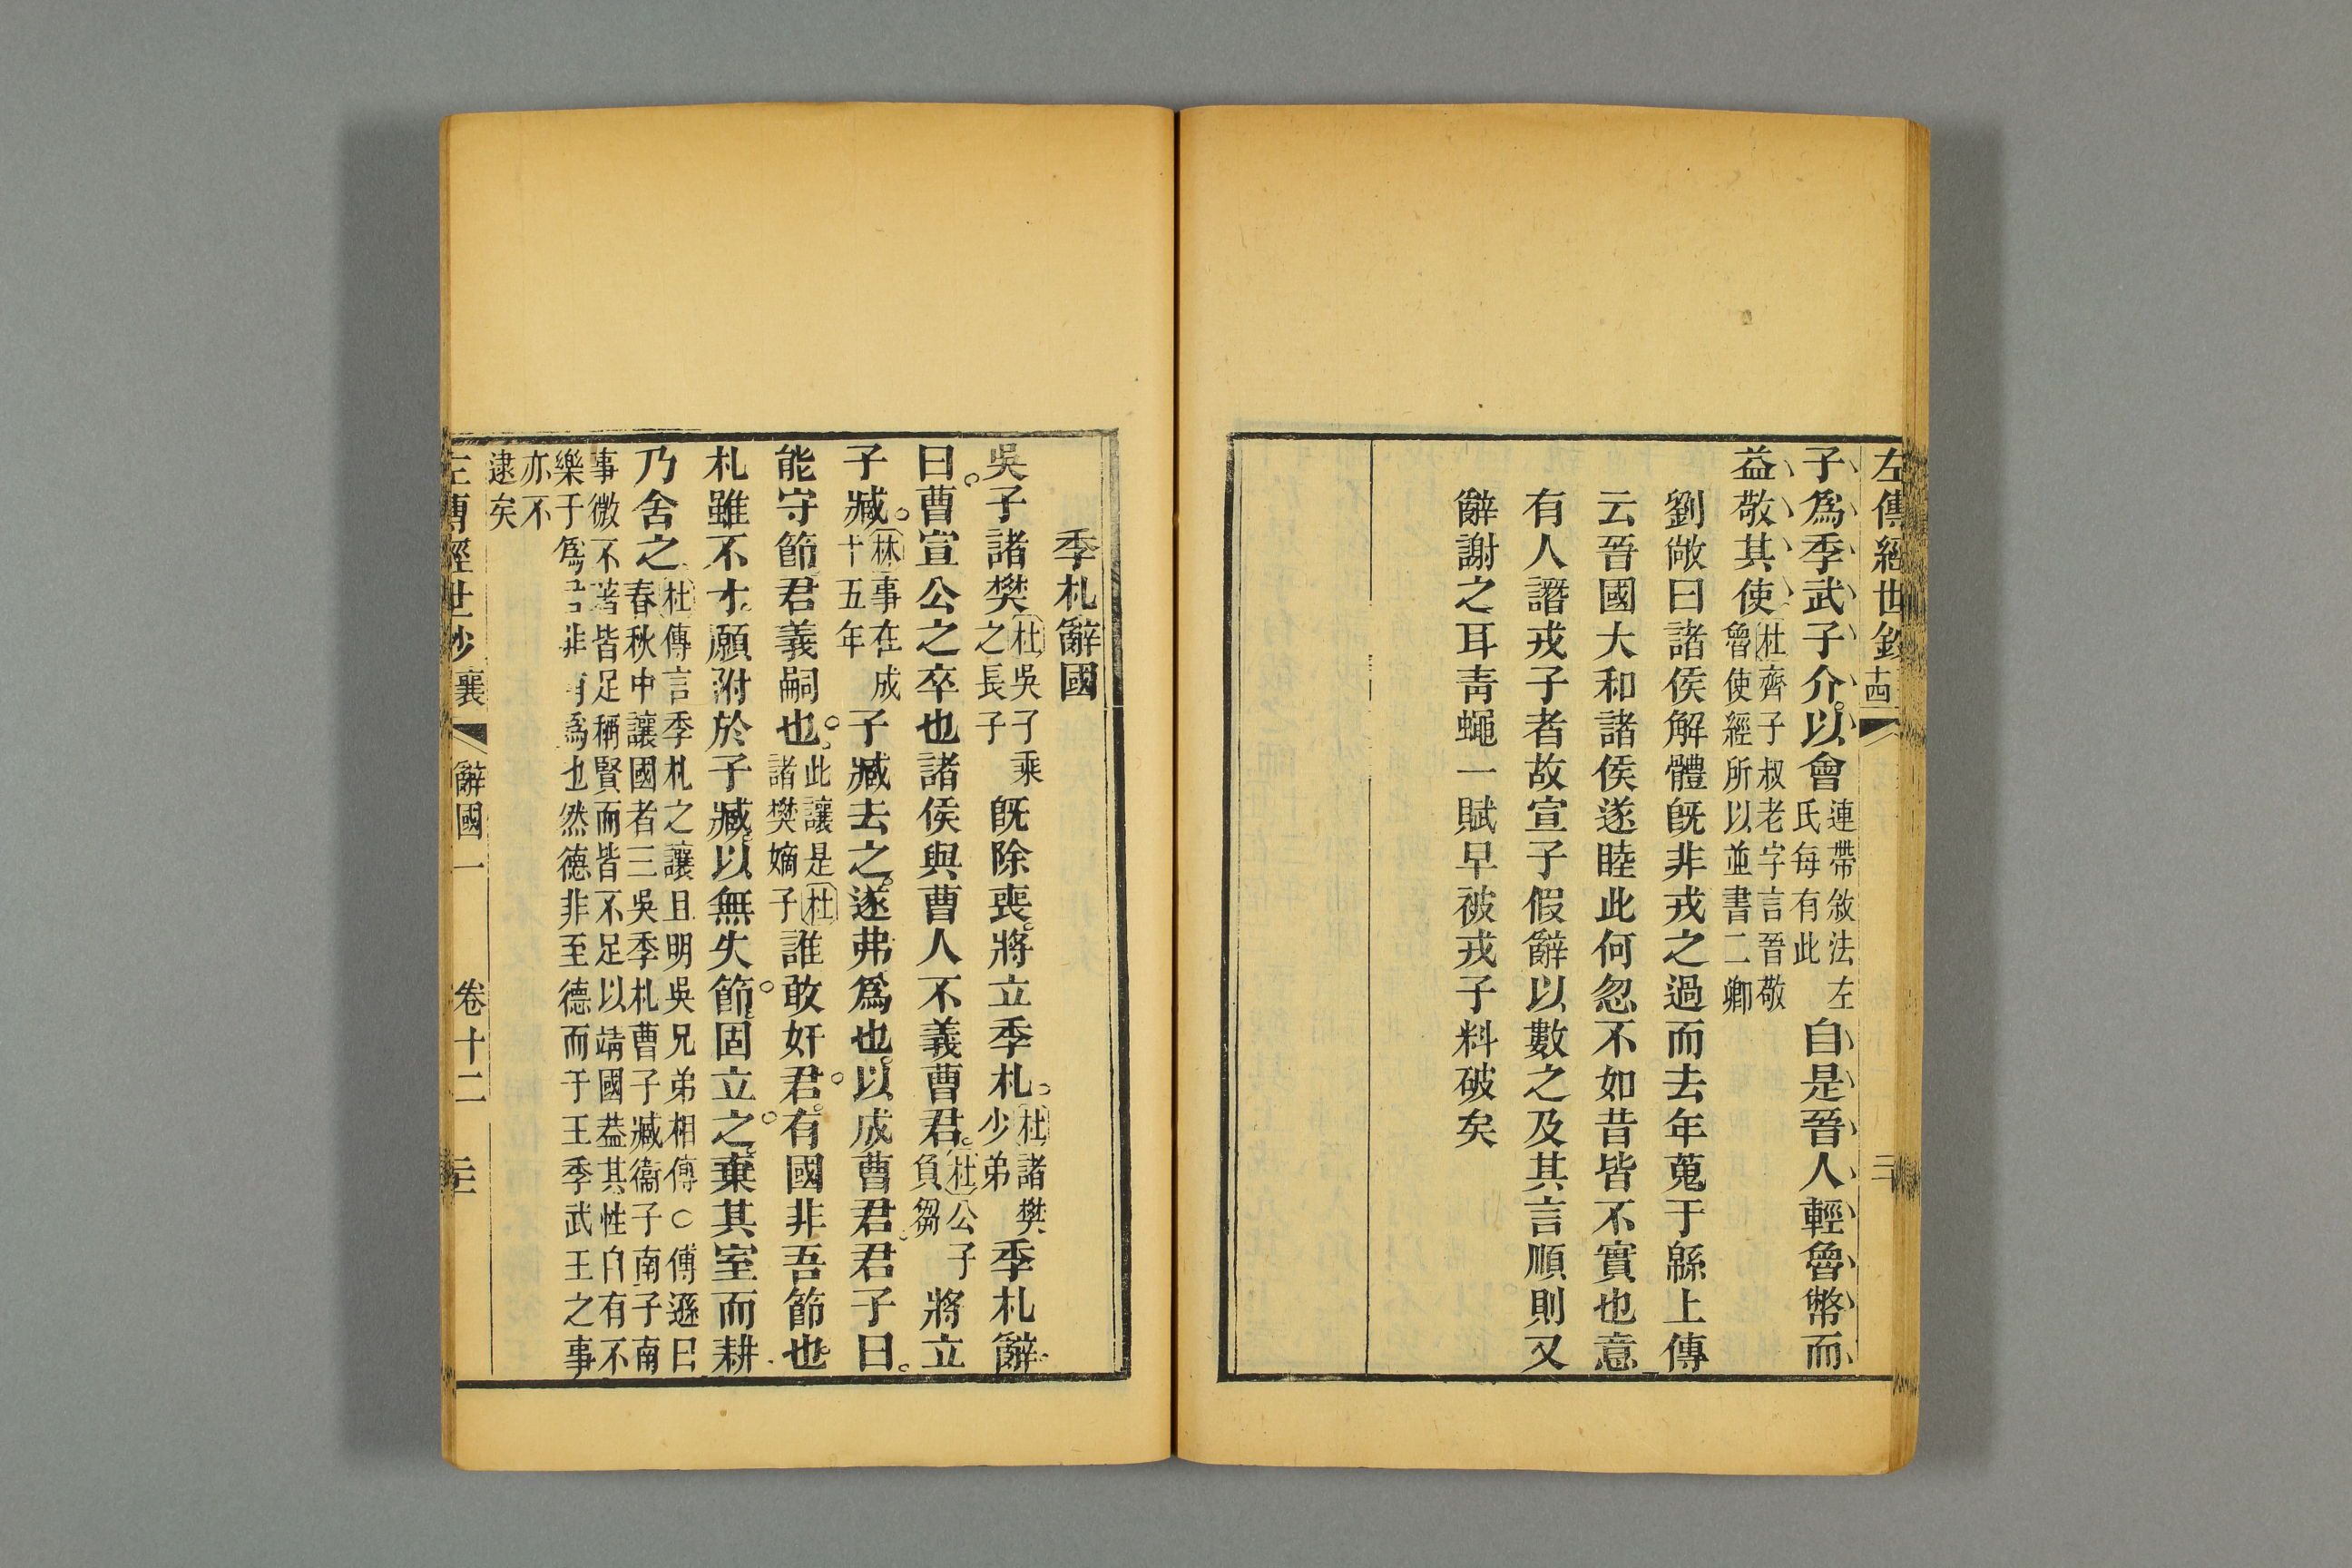 左傳經世鈔 十四
子爲季武子介以會連帶敘法左氏每有此自是晉人輕魯幣而
益敬其使杜齊子叔老字言晉敬魯使經所以並書二卿
劉敞曰諸侯解體旣非戎之過而去年蒐于緜上傳
云晉國大和諸侯遂睦此何忽不如昔皆不實也意
有人譖戎子者故宣子假辭以數之及其言順則又
辭謝之耳靑蠅一賦早被戎子料破矣
季札辭國
吳子諸樊杜吳子乘之長子旣除喪將立季札杜諸樊少弟季札辭
曰曹宣公之卒也諸侯與曹人不義曹君杜公子負芻將立
子臧林事在成十五年子臧去之遂弗爲也以成曹君君子曰
能守節君義嗣也此讓是杜諸樊嫡子誰敢奸君有國非吾節也
札雖不才願附於子臧以無失節固立之棄其室而耕
乃舍之杜傳言季札之讓且明吳兄弟相傳○傅遜曰春秋中讓國者三吳季札曹子臧衞子南子南
事微不著皆足稱賢而皆不足以靖國葢其性自有不樂于爲君非有爲也然德非至德而于王季武王之事
亦不逮矣
左傳經世鈔 襄 辭國一 卷十二